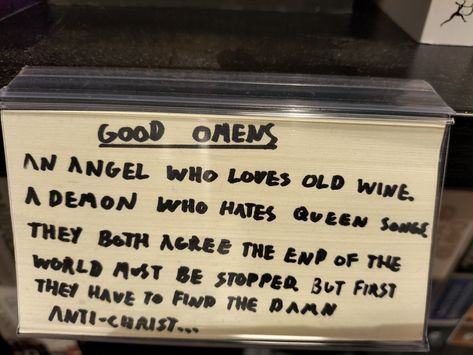 GOOD OMENS
AN ANGEL WHO LOVES OLD WINE.
A DEMON WHO HATES QUEEN SONGS
THEY BOTH AGREE THE END OF THE
WORLD MUST BE STOPPED BUT FIRST
THEY HAVE TO FIND THE DAMN
ANTI-CHRIST...